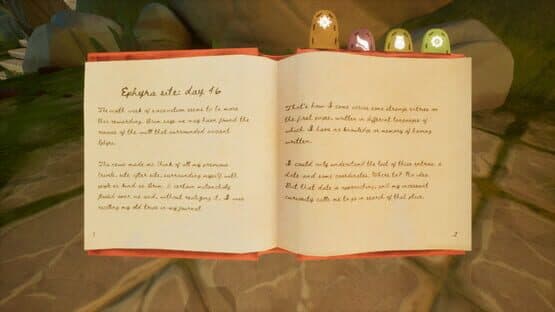 Ephyra site: day 16
The sixth week of excavation seems to be more
than rewarding. Oren says we may have found the
remains of the wall that surrounded ancient
Ephyra.
The cave made me think of all my previous
travels, site after site, surrounding myself with
people as kind as Oren. A certain melancholy
flooded over me and, without realizing it, I was
reciting my old trips in my journal.
1
That's how I came across some strange entries on
the first pages, written in different languages of
which I have no knowledge or memory of having
written.
I could only understand the last of these entries, a
date and some coordinates. Where to? No idea.
But that date is approaching, and my incessant
curiosity calls me to go in search of that place.
2